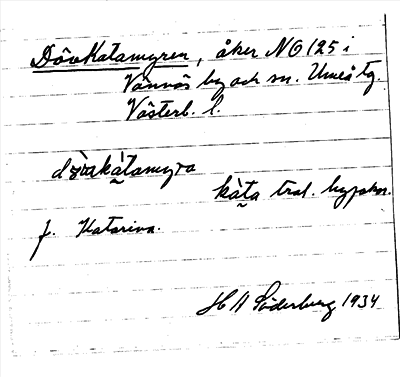 Dövkatamyren, åker NO 125 i
Vännäs by och sn. Umeå tg.
Västerb. l.
dövakàtamyra
kàta trol. hypokor.
f. Katarina.
H A Söderberg 1934